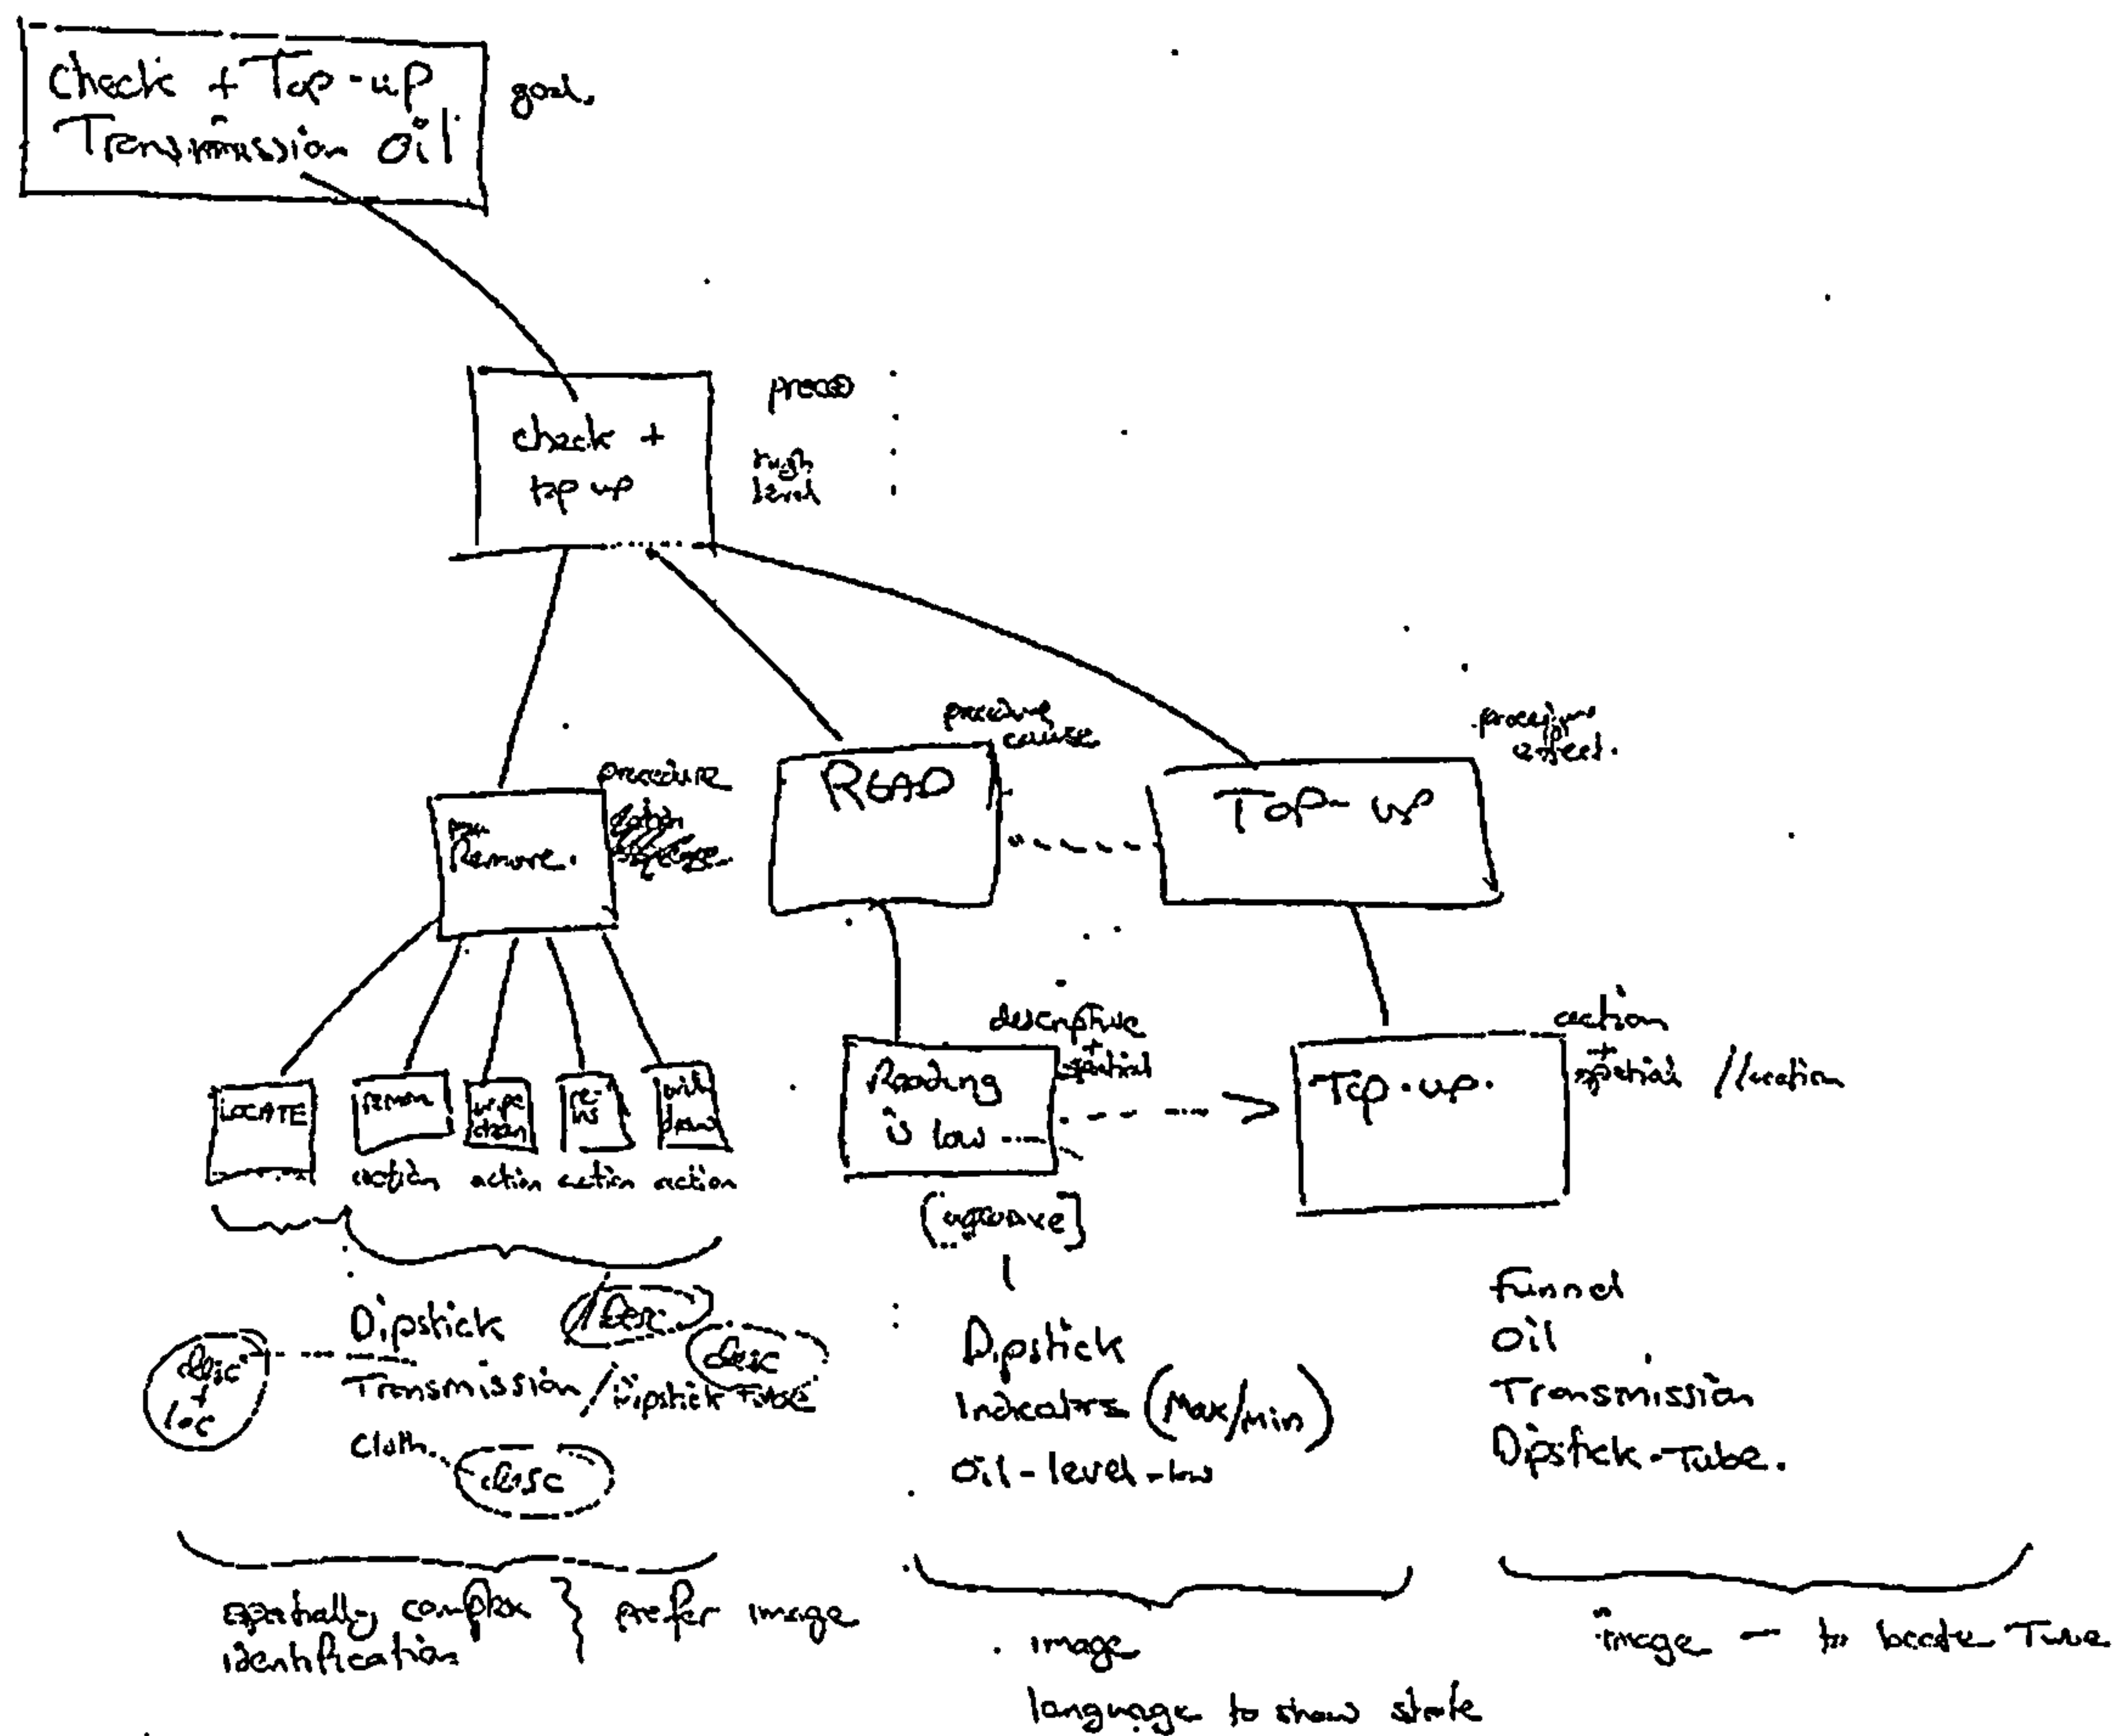 Check + Top-up
Transmission Oil
goal.
check +
top up
high
level
procedure
cause
effect.
procedure
Remove.
READ
TOP-UP
descriptive
+
spatial
action
+
spatial //location
LOCATE
remove
wipe
clean
re-
ins
with
draw
Reading
is low
Top-up.
action
action
action
action
Dipstick
desc
desc
desc
+
loc
Transmission / Dipstick Tube
Cloth.
desc
Dipstick
Indicators (Max/Min)
Oil-level-low
Funnel
Oil
Transmission
Dipstick-Tube.
spatially complex } prefer image
identification
image
language to show state
image - to locate Tube